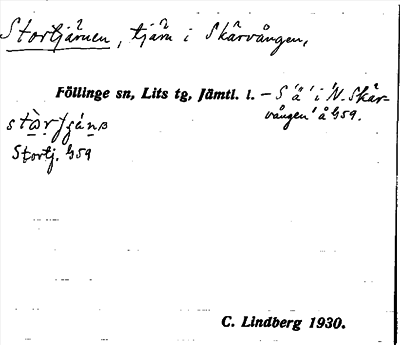 Stortjärnen, tjärn i Skärvången,
Föllinge sn, Lits tg, Jämtl. l. – S 'ä' i 'N. Skär-
vången' å G59.
Stortj. G59
C. Lindberg 1930.